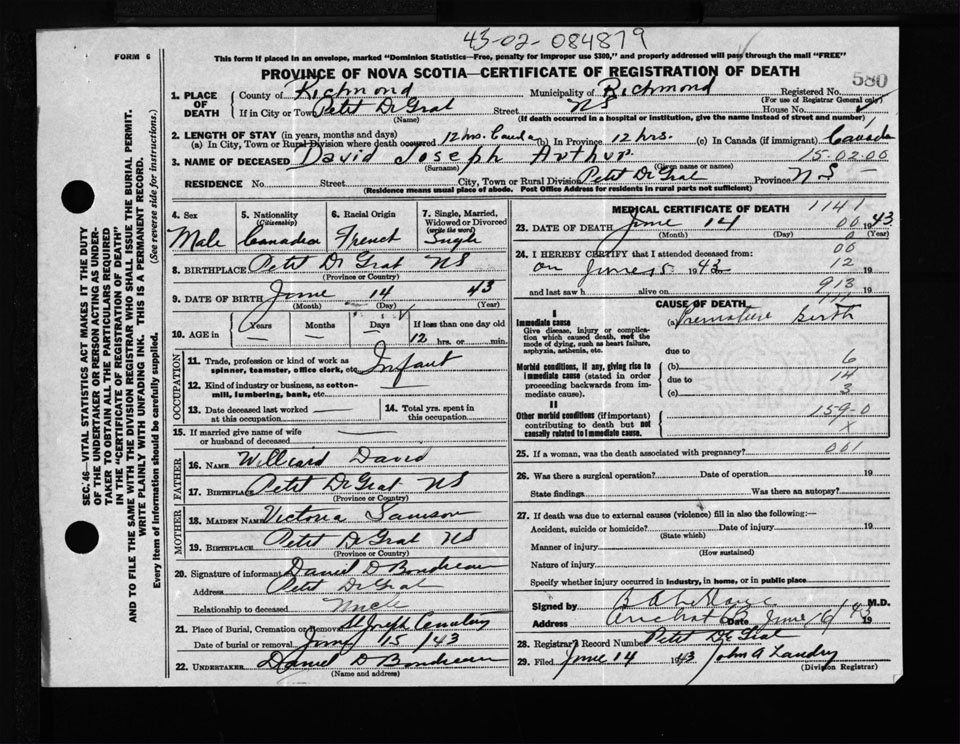 43-02-084879
FORM 6
This form if placed in an envelope, marked "Dominion Statistics—Free, penalty for improper use $300," and properly addressed will pass through the mail "FREE"
PROVINCE OF NOVA SCOTIA—CERTIFICATE OF REGISTRATION OF DEATH
580
1. PLACE OF DEATH
County of Richmond Municipality of Richmond Registered No.
(For use of Registrar General only)
If in City or Town Petit De Grat Street NS House No.
(Name) (If death occurred in a hospital or institution, give the name instead of street and number)
2. LENGTH OF STAY (in years, months and days)
(a) In City, Town or Rural Division where death occurred 12 hrs. (b) In Province 12 hrs. (c) In Canada (if immigrant) Canada
3. NAME OF DECEASED David Joseph Arthur 15-02-00
(Surname) (Given name or names)
RESIDENCE No. Street City, Town or Rural Division Petit De Grat Province NS
(Residence means usual place of abode. Post Office Address for residents in rural parts not sufficient)
4. Sex Male
5. Nationality (Citizenship) Canadian
6. Racial Origin French
7. Single, Married, Widowed or Divorced (write the word) Single
8. BIRTHPLACE Petit De Grat NS
(Province or Country)
9. DATE OF BIRTH June 14 43
(Month) (Day) (Year)
10. AGE in Years Months Days If less than one day old
— — — 12 hrs. or min.
OCCUPATION
11. Trade, profession or kind of work as spinner, teamster, office clerk, etc. Infant
12. Kind of industry or business, as cotton-mill, lumbering, bank, etc. —
13. Date deceased last worked at this occupation —
14. Total yrs. spent in this occupation
15. If married give name of wife or husband of deceased —
FATHER
16. NAME Williard David
17. BIRTHPLACE Petit De Grat NS
(Province or Country)
MOTHER
18. MAIDEN NAME Victoria Samson
19. BIRTHPLACE Petit De Grat NS
(Province or Country)
20. Signature of informant Daniel D Boudreau
Address Petit De Grat
Relationship to deceased Uncle
21. Place of Burial, Cremation or Removal St Joseph Cemetery
Date of burial or removal June 15 1943
22. UNDERTAKER Daniel D Boudreau
(Name and address)
MEDICAL CERTIFICATE OF DEATH 1141
23. DATE OF DEATH June 14 00 1943
(Month) (Day) (Year)
24. I HEREBY CERTIFY that I attended deceased from:
00
on June 1943 12 19
and last saw h alive on 913 19
CAUSE OF DEATH
I
Immediate cause
Give disease, injury or complication which caused death, not the mode of dying, such as heart failure, asphyxia, asthenia, etc.
(a) Premature birth
due to
Morbid conditions, if any, giving rise to immediate cause (stated in order proceeding backwards from immediate cause).
(b) 6
due to 14
(c) 3
II
Other morbid conditions (if important) contributing to death but not causally related to immediate cause.
159-0
x
25. If a woman, was the death associated with pregnancy? 001
26. Was there a surgical operation? Date of operation 19
State findings Was there an autopsy?
27. If death was due to external causes (violence) fill in also the following:—
Accident, suicide or homicide? Date of injury 19
(State which)
Manner of injury
(How sustained)
Nature of injury
Specify whether injury occurred in industry, in home, or in public place
Signed by M.D.
Address Arichat CB Date June 1943
28. Registrar's Record Number Petit De Grat
29. Filed June 14 1943 John A Landry
(Division Registrar)
SEC. 46—VITAL STATISTICS ACT MAKES IT THE DUTY
OF THE UNDERTAKER OR PERSON ACTING AS UNDER-
TAKER TO OBTAIN ALL THE PARTICULARS REQUIRED
IN THE "CERTIFICATE OF REGISTRATION OF DEATH"
AND TO FILE THE SAME WITH THE DIVISION REGISTRAR WHO SHALL ISSUE THE BURIAL PERMIT.
WRITE PLAINLY WITH UNFADING INK. THIS IS A PERMANENT RECORD.
Every item of information should be carefully supplied. (See reverse side for instructions.)